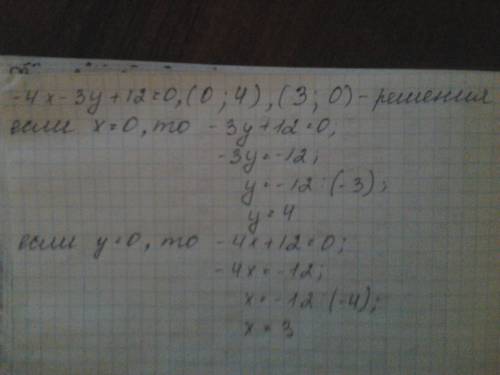 -4x-3y+12=0, (0; 4), (3; 0) - решения
если x=0, то -3y+12=0;
-3y=-12;
y=-12:(-3);
y=4
если y=0, то -4x+12=0;
-4x=-12;
x=-12:(-4);
x=3